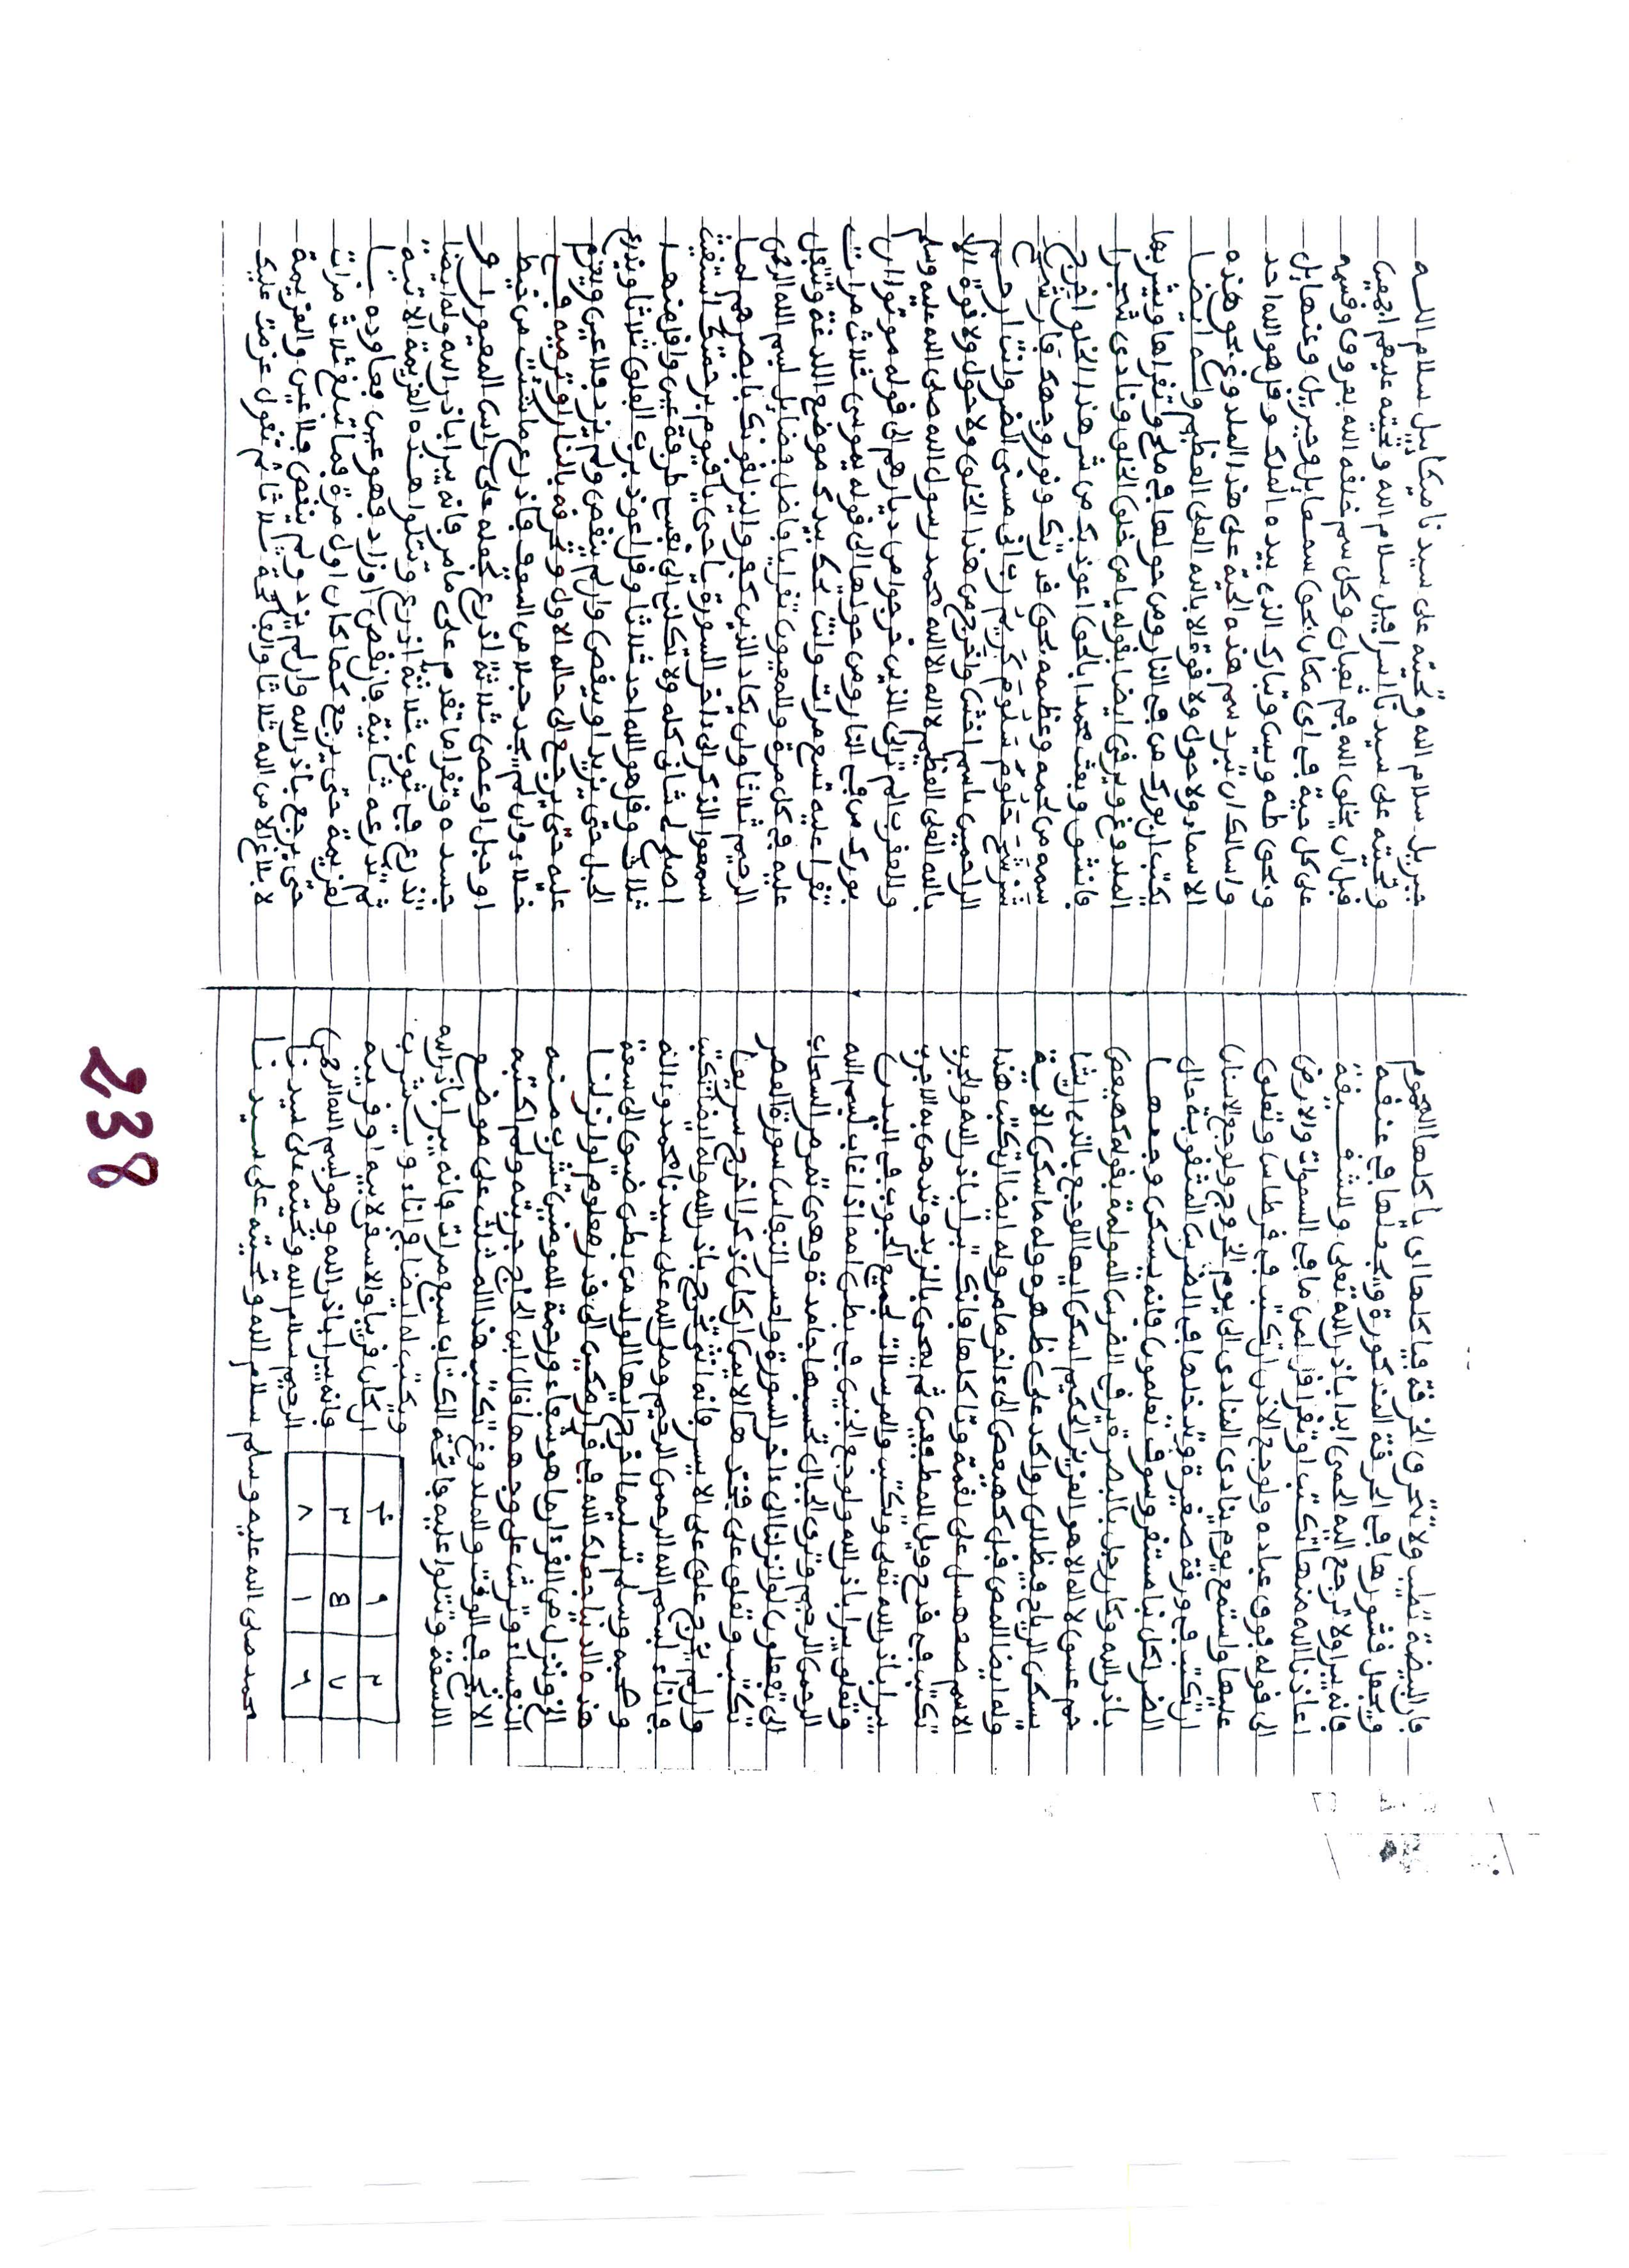 فان البيضة تطيب ولا تحرق الخرقة فياكلها اى ياكلها المحموم
ويجعل قشورها في الخرقة المذكورة ويجعلها في عنقه
فانه يبرا ولا ترجع اليه الحمى ابدا باذن الله تعلى وللشقيقة
اعاذنا الله منها تكتب او تقرا قل لمن ما في السموات والارض
الى قوله فوق عباده ولوجع الاذن ان تكتب في قرطاس وتعلق
عليها واستمع يوم ينادى المنادى الى يوم الخروج ولوجع الاسنان
ان تكتب في ورقة صغيرة وتدخلها في الضرس المثقوبة فحال
الضر لكل نبا مستقر وسوف تعلمون فانه يسكن وجعها
باذن الله وكان رجل بالبصرة يرقى الضرس المولمة بقوله كهيعص
حم عسق لا اله الا هو العزيز الحكيم اسكن ايها الوجع بالذى ان يشا
يسكن الرياح فيظللن رواكد على ظهره وله ما سكن الاية
وله ايضا المص قبل كهيعص الى ءاخر ما مر وله ايضا ان تكتب هذا
الاسم صعهسل على لقمة وتاكلها فانك تبرا باذن الله ولحرب
تكتب في قدح ويل للمطففين ثم يمحى بالزبد وتدهن به الاجرب
يبرا باذن الله تعلى وتكتب والمرسلات لجميع الحبوب في البدن
وتعلق يبرا باذن الله ولوجع الجنين في بطن امه اذا غاب بسم الله
الرحمن الرحيم وترى الجبال تحسبها جامدة وهى تمر مر السحاب
الى تفعلون لو انزلنا الى ءاخر السورة ولعسر النفاس سورة العصر
تكتب وتعلق على فخذها الايمن ان كان ذكرا خرج سريعا
وان لم يخرج علق على الايسر فانه انثى تخرج باذن الله وله ايضا تكتب
في اناء بسم الله الرحمن الرحيم وصل الله على سيدنا محمد وءاله
وصحبه وسلم تسليما اخرج ايها الولد من بطن ضيق الى سعة
هذه الدنيا جعلك الله في قرار مكين الى قدر معلوم لو انزلنا
الخ وننزل من القرءان ما هو شفاء ورحمة للمومنين تشرب منه
النفساء وترش على وجهها قال ابن الحاج جربته ولم اكتبه
الا نجح في الوقت والملدوغ تكتب هذا المثلث على موضع
اللسعة وتتلوا عليه فاتحة الكتاب سبع مرات فانه يبرا باذن الله
ويكتب له ايضا في اناء ويشرب
ان كان قريبا والا سقى لابيه او قريبه
فانه يبرا باذن الله وهو بسم الله الرحمن
الرحيم سلام الله وتحيته على سيدنا
محمد صلى الله عليه وسلم سلام الله وتحيته على سيدنا
٤ ٩ ٢
٣ ٥ ٧
٨ ١ ٦
جبريل سلام الله وتحيته على سيدنا ميكاييل سلام الله
وتحيته على سيدنا اسرافيل سلام الله وتحيته عليهم اجمعين
قبل ان يخلق الله فم ثعبان وكل سم خلقه الله بعروق وقسمه
على كل حية في اى مكان بحق سمعايل وجبريل وعنهايل
وبحق طه ويس وتبارك الذى بيده الملك وقل هو الله احد
واسالك ان تبرد سم هذه الحية على هذا الملدوغ بحق هذه
الاسماء ولا حول ولا قوة الا بالله العلى العظيم وله ايضا
يكتب ان بورك من في النار ومن حولها في ملح وتقراها ويشربها
الملدوغ ويرقى ايضا بقوله يا من خلق الخلق ونادى شجرا
فانشق وبعث محمدا بالحق اعوذ بك من شر هذا الخلق اخرج
سمه من لحمه وعظمه بحق قدرتك ونور وجهك
الراحمين باسم اخنس واخرج من هذا الخلق ولا حول ولا قوة الا
بالله العلى العظيم لا اله الا الله محمد رسول الله صلى الله عليه وسلم
وللعقرب الم تر الى الذين خرجوا من ديارهم الى قوله موتوا ان
بورك من في النار ومن حولها الى قوله يموسى ثلاث مرات
تقرا عليه تسع مرات وانت تحك بيدك موضع اللدغة وتتفل
عليه في كل مرة وللمعيون تقرا يا فاضل فضايل بسم الله الرحمن
الرحيم ثلاثا وان يكاد الذين كفروا ليزلقونك بابصرهم لما
سمعوا الذكر الى ءاخر السورة يا حى يا قيوم برحمتك استغيث
اصلح لى شانى كله ولا تكلنى الى نفسى طرفة عين واقل منها
ثلاث وقل هو الله احد ثلاثا وقل اعوذ برب الفلق ثلاثا وتذرع
الحبل حتى يزيد او ينقص وان لم ينقص ولم يزد فلا عين وتعزم
عليه حتى يرجع الى حاله الاول وتحرقه بالنار او ترميه في
خلاء وان لم تجد حبلا من الصوف فاذرع ما شئت من خيط
او حبل او عصى ثلاثة اذرع تجعله على راس المعيون او
جسده وتقرا ما تقدم على ما مر فانه يبرا باذن الله وله ايضا
تذرع في ثوب ثلاثة اذرع وتتلوا هذه العزيمة الاتية
ثم تذرعه ثانية فان نقص او زاد فهو عين فعاوده
لعزيمة حتى يرجع كما كان اول مرة فما تبلغ ثلاث مرات
حتى يرجع باذن الله وان لم يزد ولم ينقص فلا عين والعزيمة
لا بلاغ الا من الله ثلاثا والفاتحة ثلاثا ثم تقول عزمت عليك
238